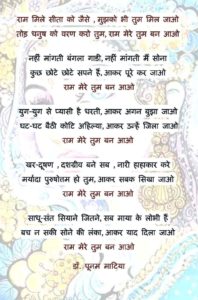 राम मिले सीता को जैसे , मुझको भी तुम मिल जाओ
तोड़ धनुष को वरण करो तुम, राम मेरे तुम बन आओ
नहीं मांगती बंगला गाडी, नहीं मांगती मैं सोना
कुछ छोटे छोटे सपने हैं, आकर पूरे कर जाओ
राम मेरे तुम बन आओ
युग-युग से प्यासी है धरती, आकर अगन बुझा जाओ
घट-घट बैठी कोटि अहिल्या, आकर उन्हें जिला जाओ
राम मेरे तुम बन आओ
खर-दूषण , दशग्रीव बने सब , नारी हाहाकार करे
मर्यादा पुरुषोत्तम हो तुम, आकर सबक सिखा जाओ
राम मेरे तुम बन आओ
साधू-संत सियाने जितने, सब माया के लोभी हैं
बच न सकी सोने की लंका, आकर याद दिला जाओ
राम मेरे तुम बन आओ
डॉ. पूनम माटिया